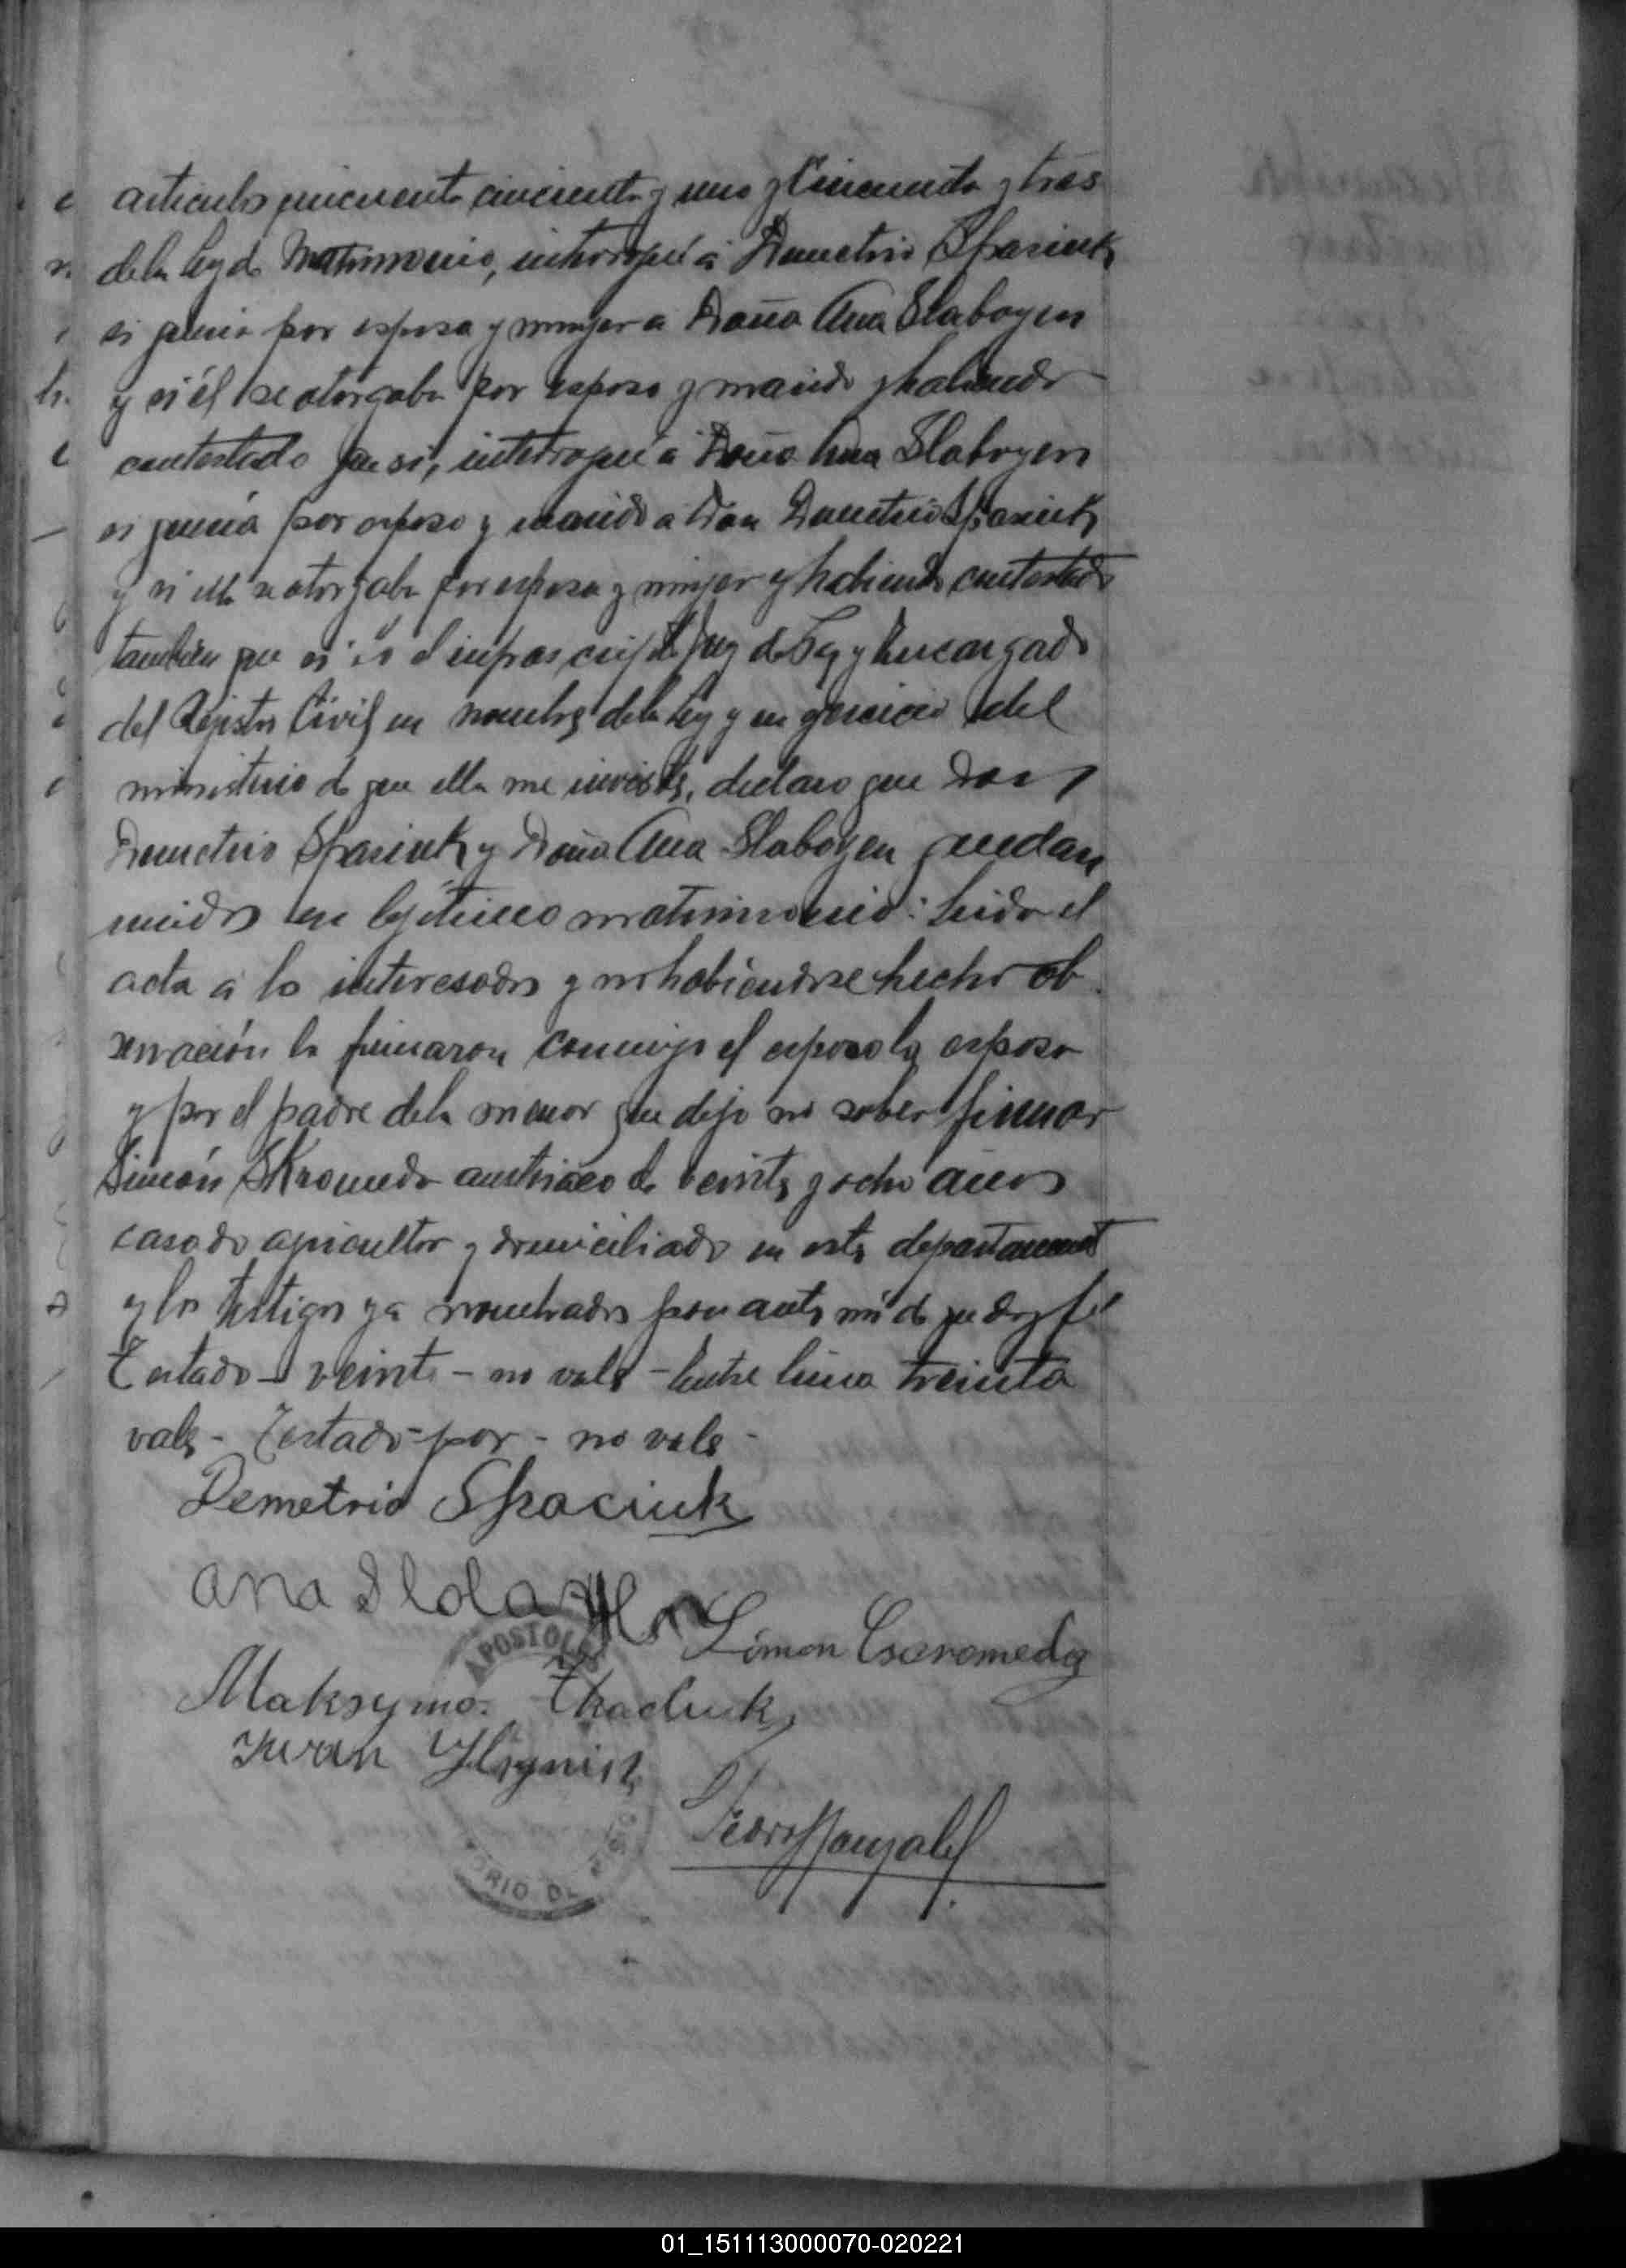 articulos cincuenta cincuenta y uno y Cincuenta y tres
de la Ley de Matrimonio, interrogué á Demetrio Spasiuk
si queria por esposa y mujer a Doña Ana Slabogen
y si él se otorgaba por esposo y marido y habiendo
contestado que si, interrogué a Doña Ana Slabogen
si quería por esposo y marido a Don Demetrio Spasiuk
y si ella se otorgaba por esposa y mujer y habiendo contestado
tambien que si yo el infrascripto Juez de Paz y Encargado
del Registro Civil en nombre de la Ley y en ejercicio del
ministerio de que ella me inviste, declaro que Don
Demetrio Spasiuk y Doña Ana Slabogen quedan
unidos en lejitimo matrimonio: leida el
acta á los interesados y no habiendose hecho ob
servación la firmaron conmigo el esposo la esposa
y por el padre de la menor que dijo no saber firmar
Simón Skromeda austriaco de veinte y ocho años
casado agricultor y domiciliado en este departamento
y los testigos ya nombrados por ante mi de que doy fé
Testado - veinte - no vale - Entre linea treinta
vale - Testado - por - no vale -
Demetrio Spaciuk
ana
Simon
Maksymo Tkaczuk
Iwan
APOSTOLES
Pedro Gonzalez
ORIO DE
01_151113000070-020221